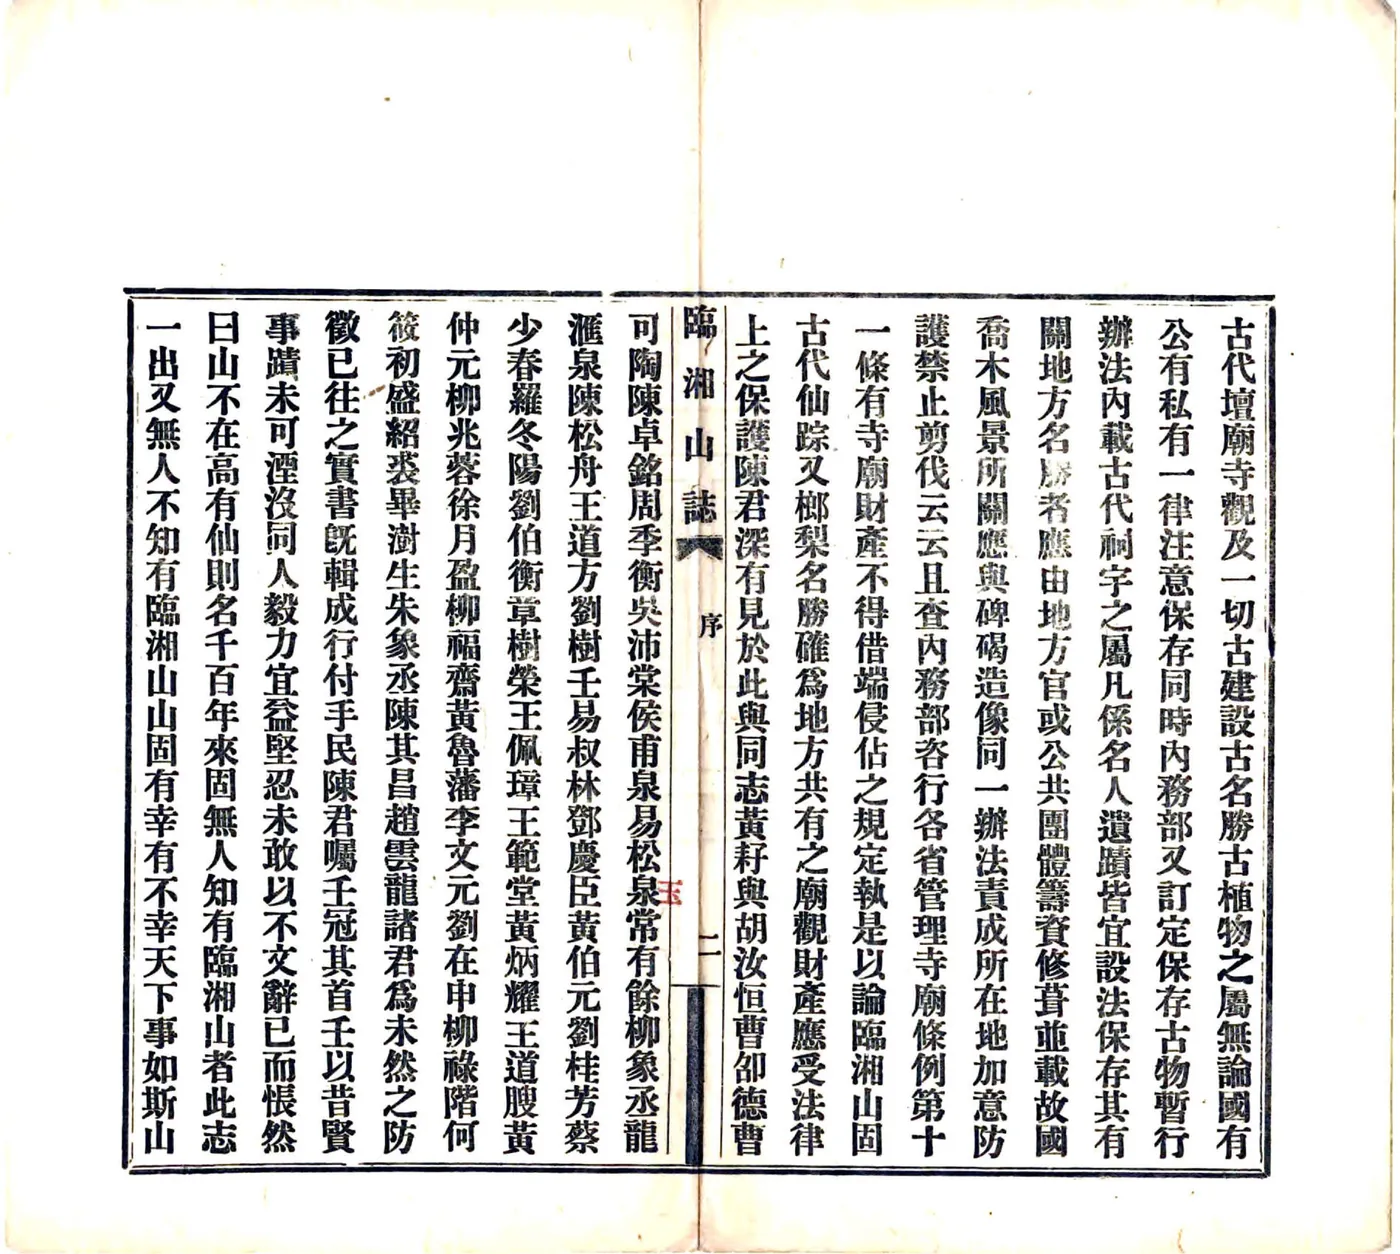 古代壇廟寺觀及一切古建設古名勝古植物之屬無論國有
公有私有一律注意保存同時內務部又訂定保存古物暫行
辦法內載古代祠宇之屬凡係名人遺蹟皆宜設法保存其有
關地方名勝者應由地方官或公共團體籌資修葺並載故國
喬木風景所關應與碑碣造像同一辦法責成所在地加意防
護禁止剪伐云云且查內務部咨行各省管理寺廟條例第十
一條有寺廟財產不得借端侵佔之規定執是以論臨湘山固
古代仙踪又榔梨名勝確爲地方共有之廟觀財產應受法律
上之保護陳君深有見於此與同志黃耔與胡汝恒曹卲德曹
臨湘山誌
序
二
玉
可陶陳卓銘周季衡吳沛棠侯甫泉易松泉常有餘柳象丞龍
滙泉陳松舟王道方劉樹壬易叔林鄧慶臣黃伯元劉桂芳蔡
少春羅冬陽劉伯衡章樹榮王佩璋王範堂黃炳耀王道膄黃
仲元柳兆蓉徐月盈柳福齋黃魯藩李文元劉在申柳祿階何
筱初盛紹裘畢澍生朱象丞陳其昌趙雲龍諸君爲未然之防
徵已往之實書旣輯成行付手民陳君囑壬冠其首壬以昔賢
事蹟未可湮沒同人毅力宜益堅忍未敢以不文辭已而悵然
曰山不在高有仙則名千百年來固無人知有臨湘山者此志
一出又無人不知有臨湘山山固有幸有不幸天下事如斯山